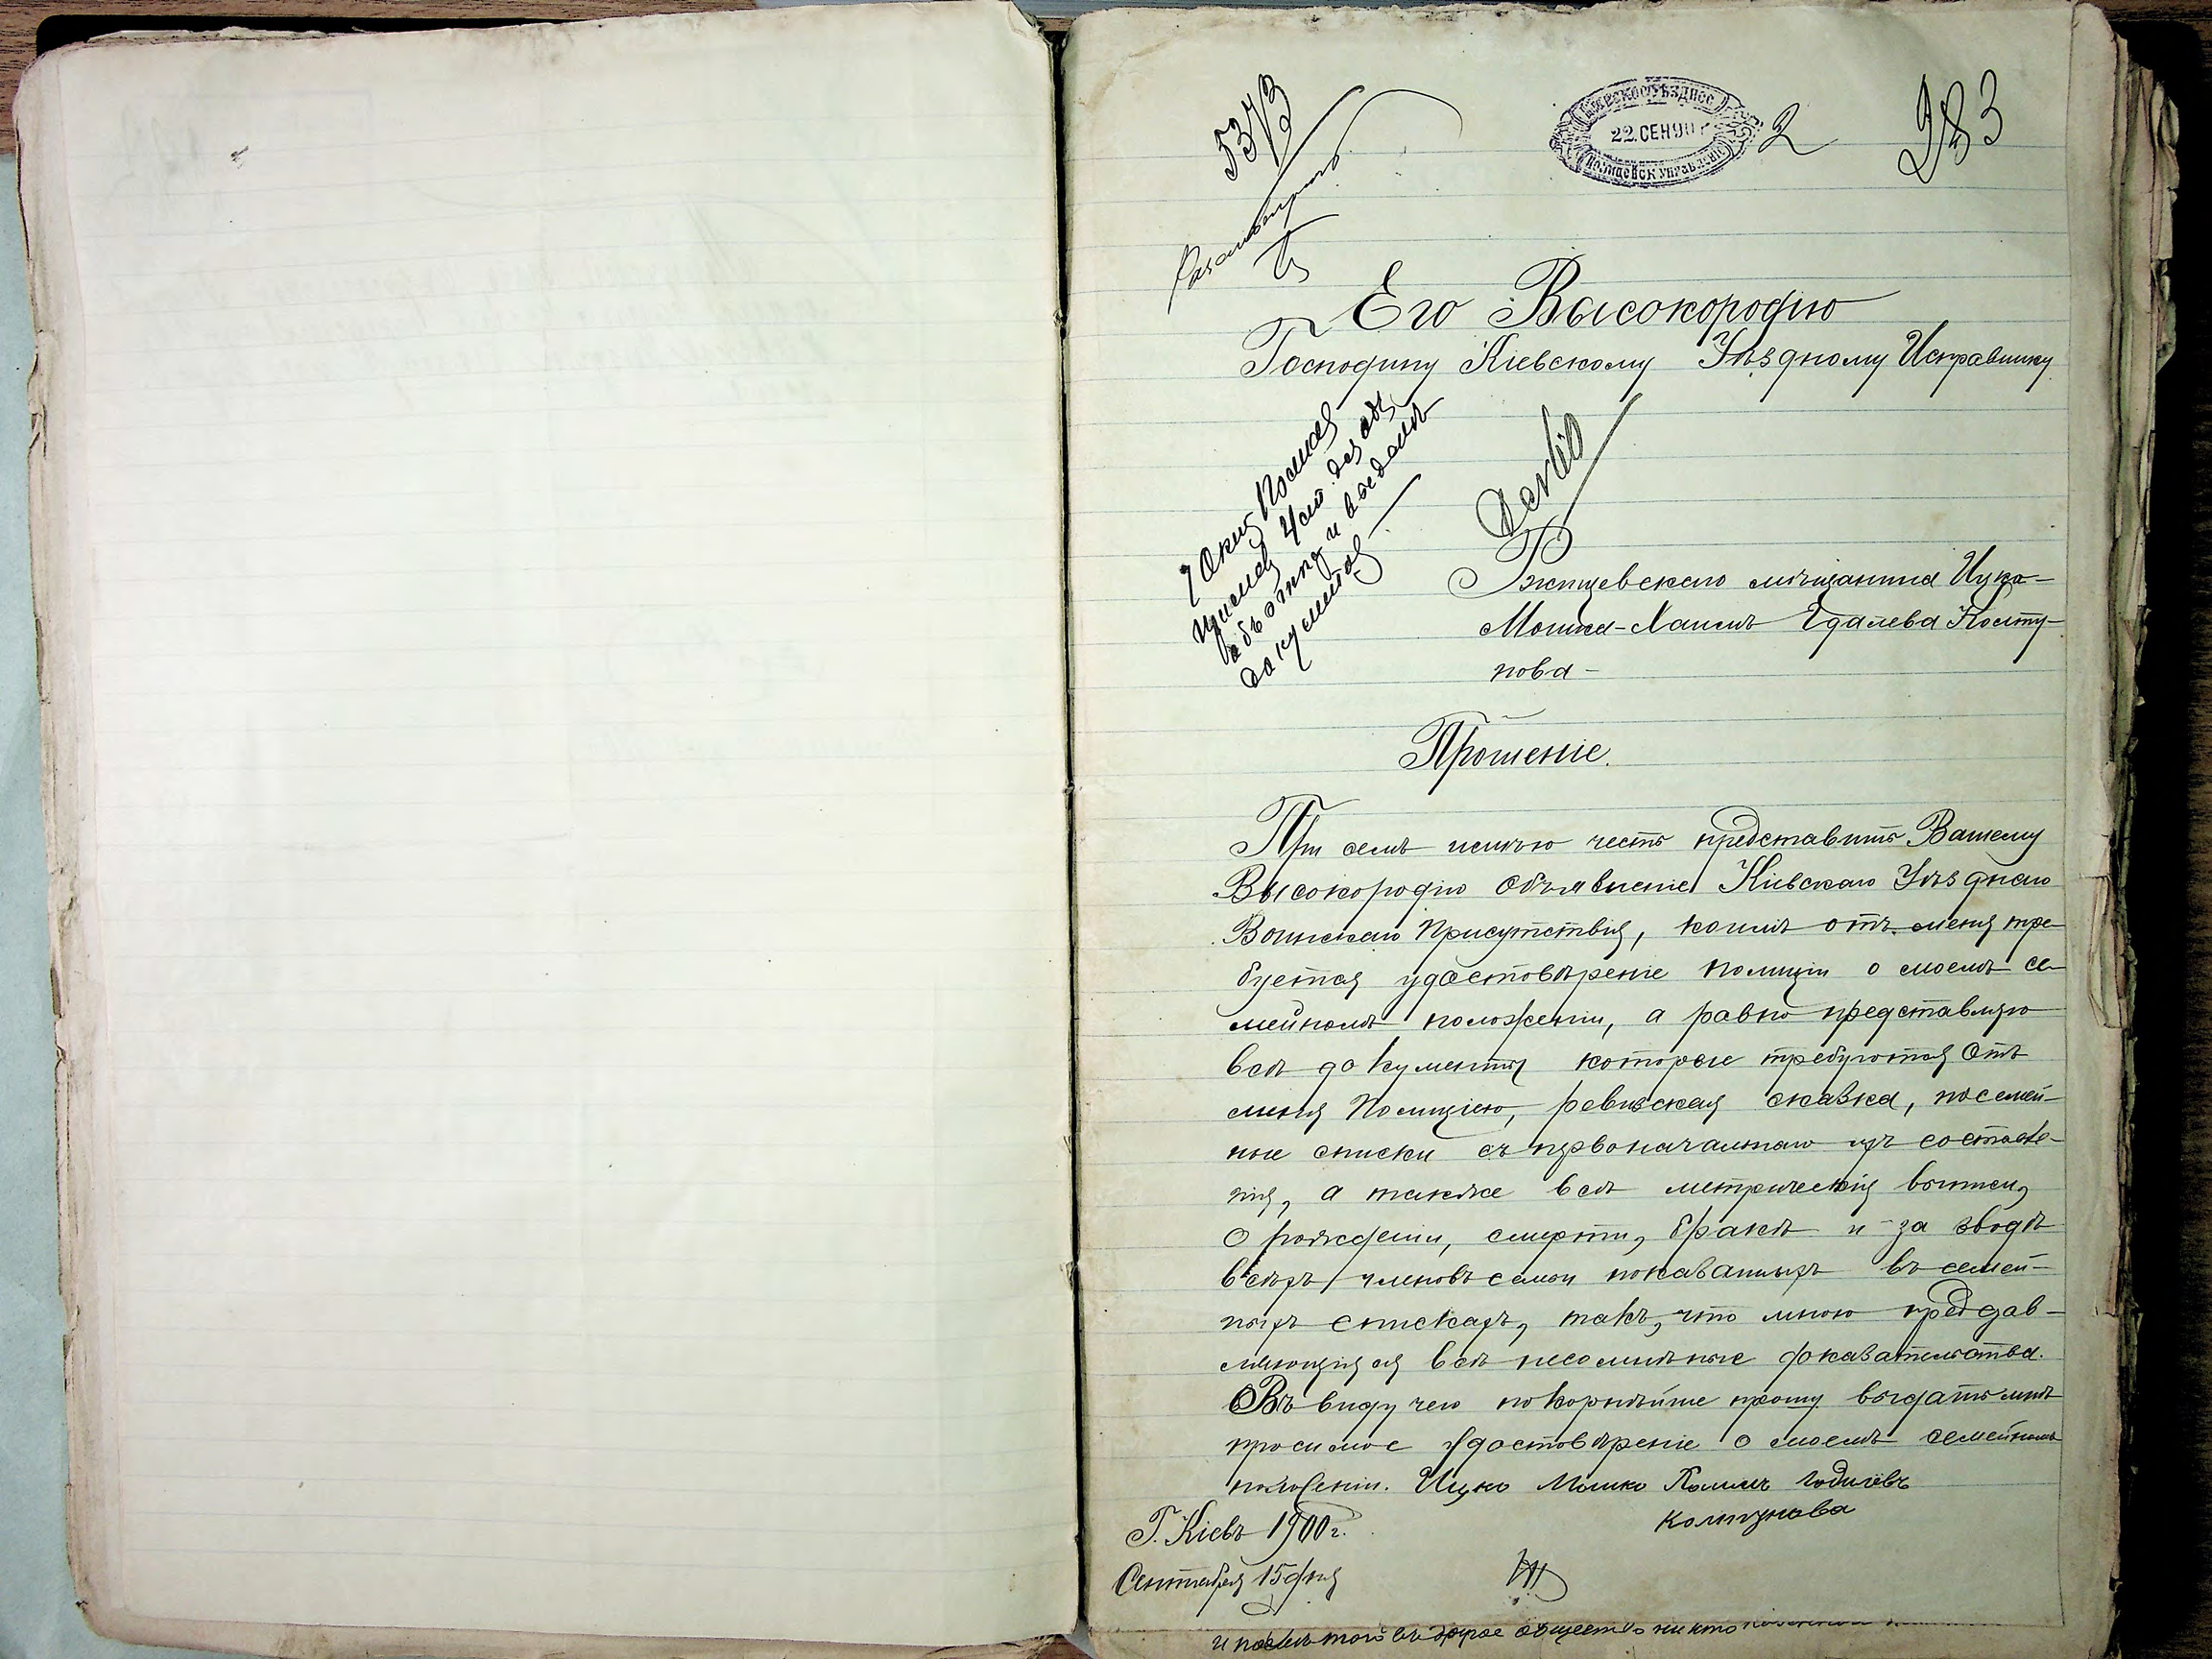 5373
2
283
КІЕВСКОЕ УѢЗДНОЕ
22. СЕН 90
ПОЛИЦЕЙСК УПРАВЛЕНІЕ
Его Высокородію
Господину Кіевскому Уѣздному Исправнику
документов
Ржищевскаго мѣщанина Ицка-
Мошка-Хаима Едалева Колту-
нова-
Прошеніе.
При семъ имѣю честь представить Вашему
Высокородію Объявленіе Кіевскаго Уѣзднаго
Воинскаго Присутствія, коимъ отъ меня тре-
буется удостовѣреніе полиціи о моемъ се-
мейномъ положеніи, а равно представляю
всѣ документы которые требуются отъ
меня Полиціею, ревизская сказка, посемей-
ные списки съ первоначальнаго ихъ составле-
нія, а также всѣ метрическія выписи,
о рожденіи, смерти, бракѣ и за
всѣхъ членовъ семьи показанныхъ въ семей-
ныхъ спискахъ, такъ, что мною предъяв-
ляющіяся всѣ несомнѣнные доказательства.
Въ виду чего покорнѣйше прошу выдать мнѣ
просимое удостовѣреніе о моемъ семейномъ
положеніи. Ицко Мошко Хаимъ
Колтунова
Г. Кіевъ 1900 г.
Сентября 15 дня
и послѣ того въ другое общество никто